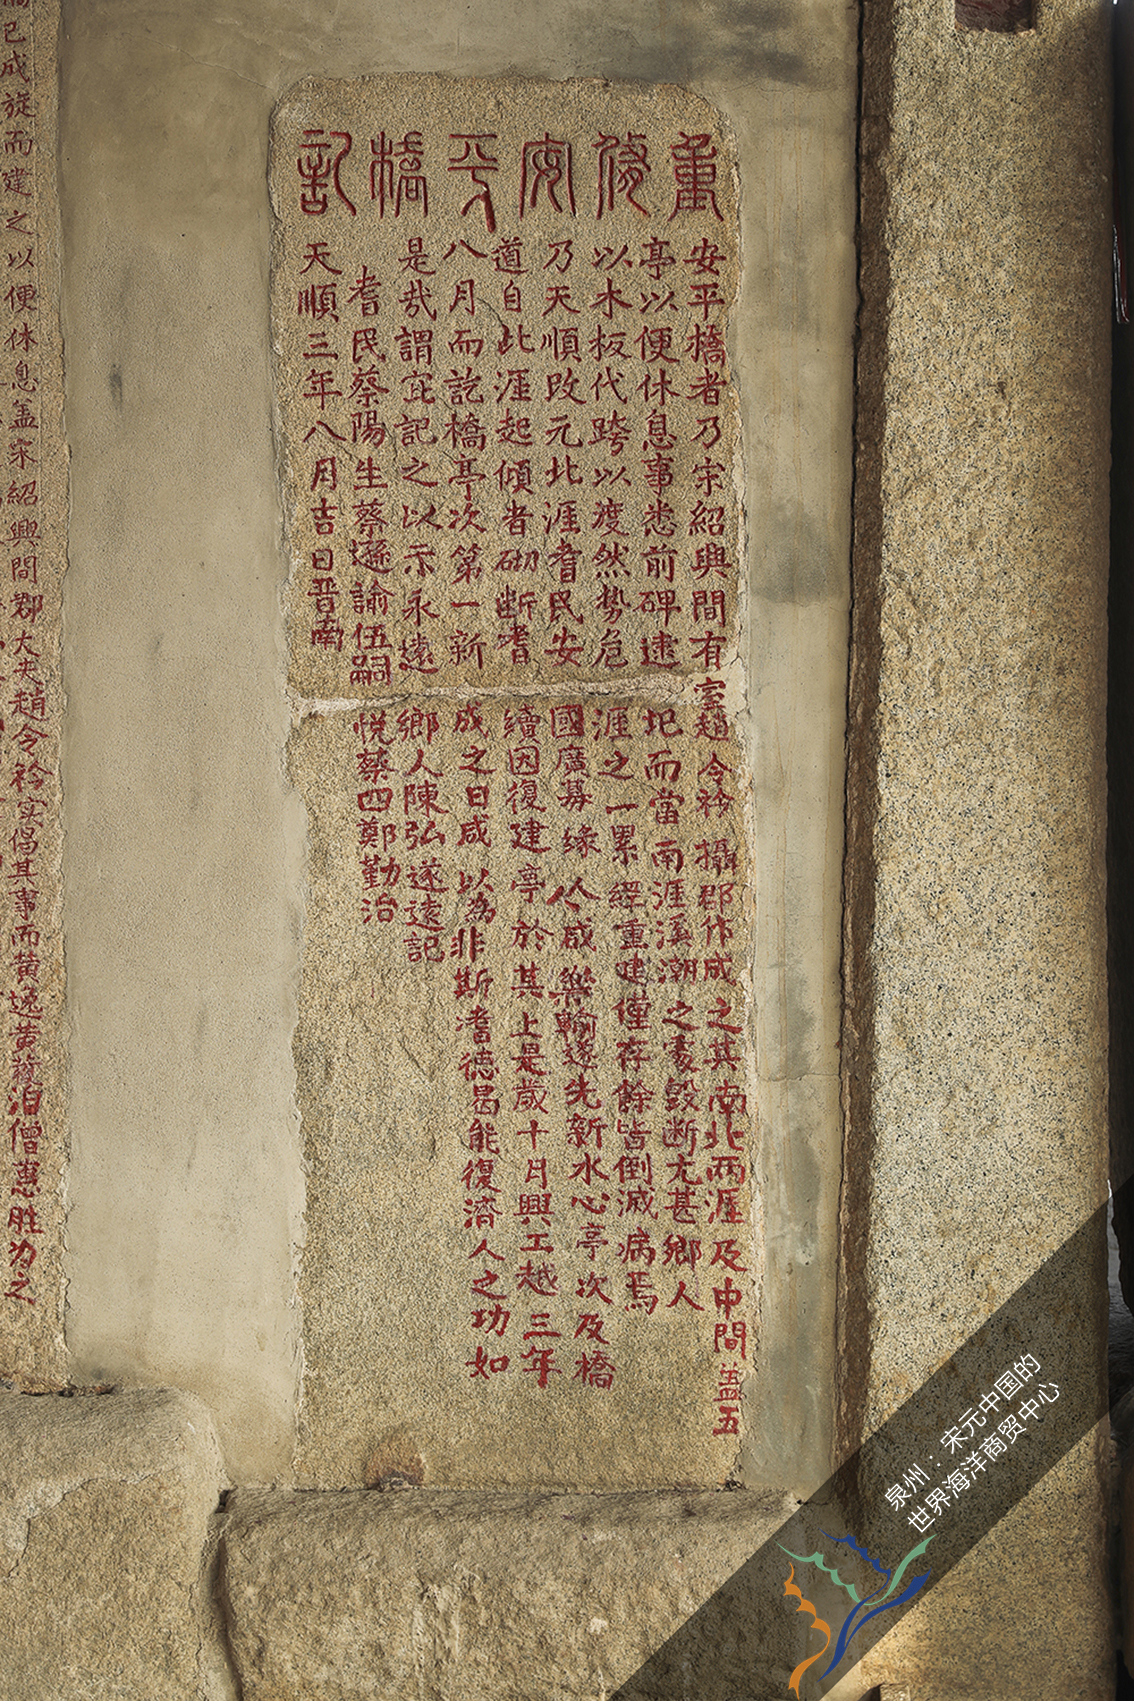 重修安平橋記
安平橋者乃宗紹興間有室趙令衿攝郡作成之其南北兩涯及中間盖五
亭以便休息事悉前碑逮圯而當南涯溪潮之衝毀断尤甚鄉人
以木板代跨以渡然勢危涯之一累經重建僅存餘皆倒滅病焉
乃天順改元北涯耆民安國廣募缘人人咸樂輸遂先新水心亭次及橋
道自此涯起傾者砌断者續因復建亭於其上是歲十月興工越三年
八月而訖橋亭次第一新成之日咸以為非斯耆德曷能復濟人之功如
是哉謂宜記之以示永遠鄉人陳弘遂遠記
耆民蔡陽生蔡遜諭伍嗣悦蔡四鄭勤治
天順三年八月吉日晋南
已成旋而建之以便休息盖宋紹興間郡大夫趙令衿实倡其事而黄逸黄護泊僧惠胜为之
泉州：宋元中国的
世界海洋商贸中心